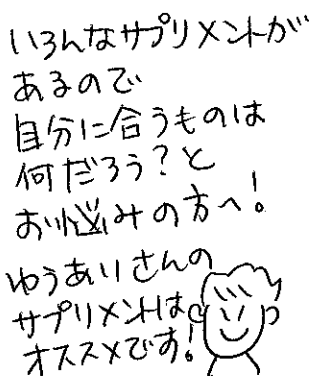 いろんなサプリメントが
あるので
自分に合うものは
何だろう？と
お悩みの方へ！
ゆうあいさんの
サプリメントは
オススメです！